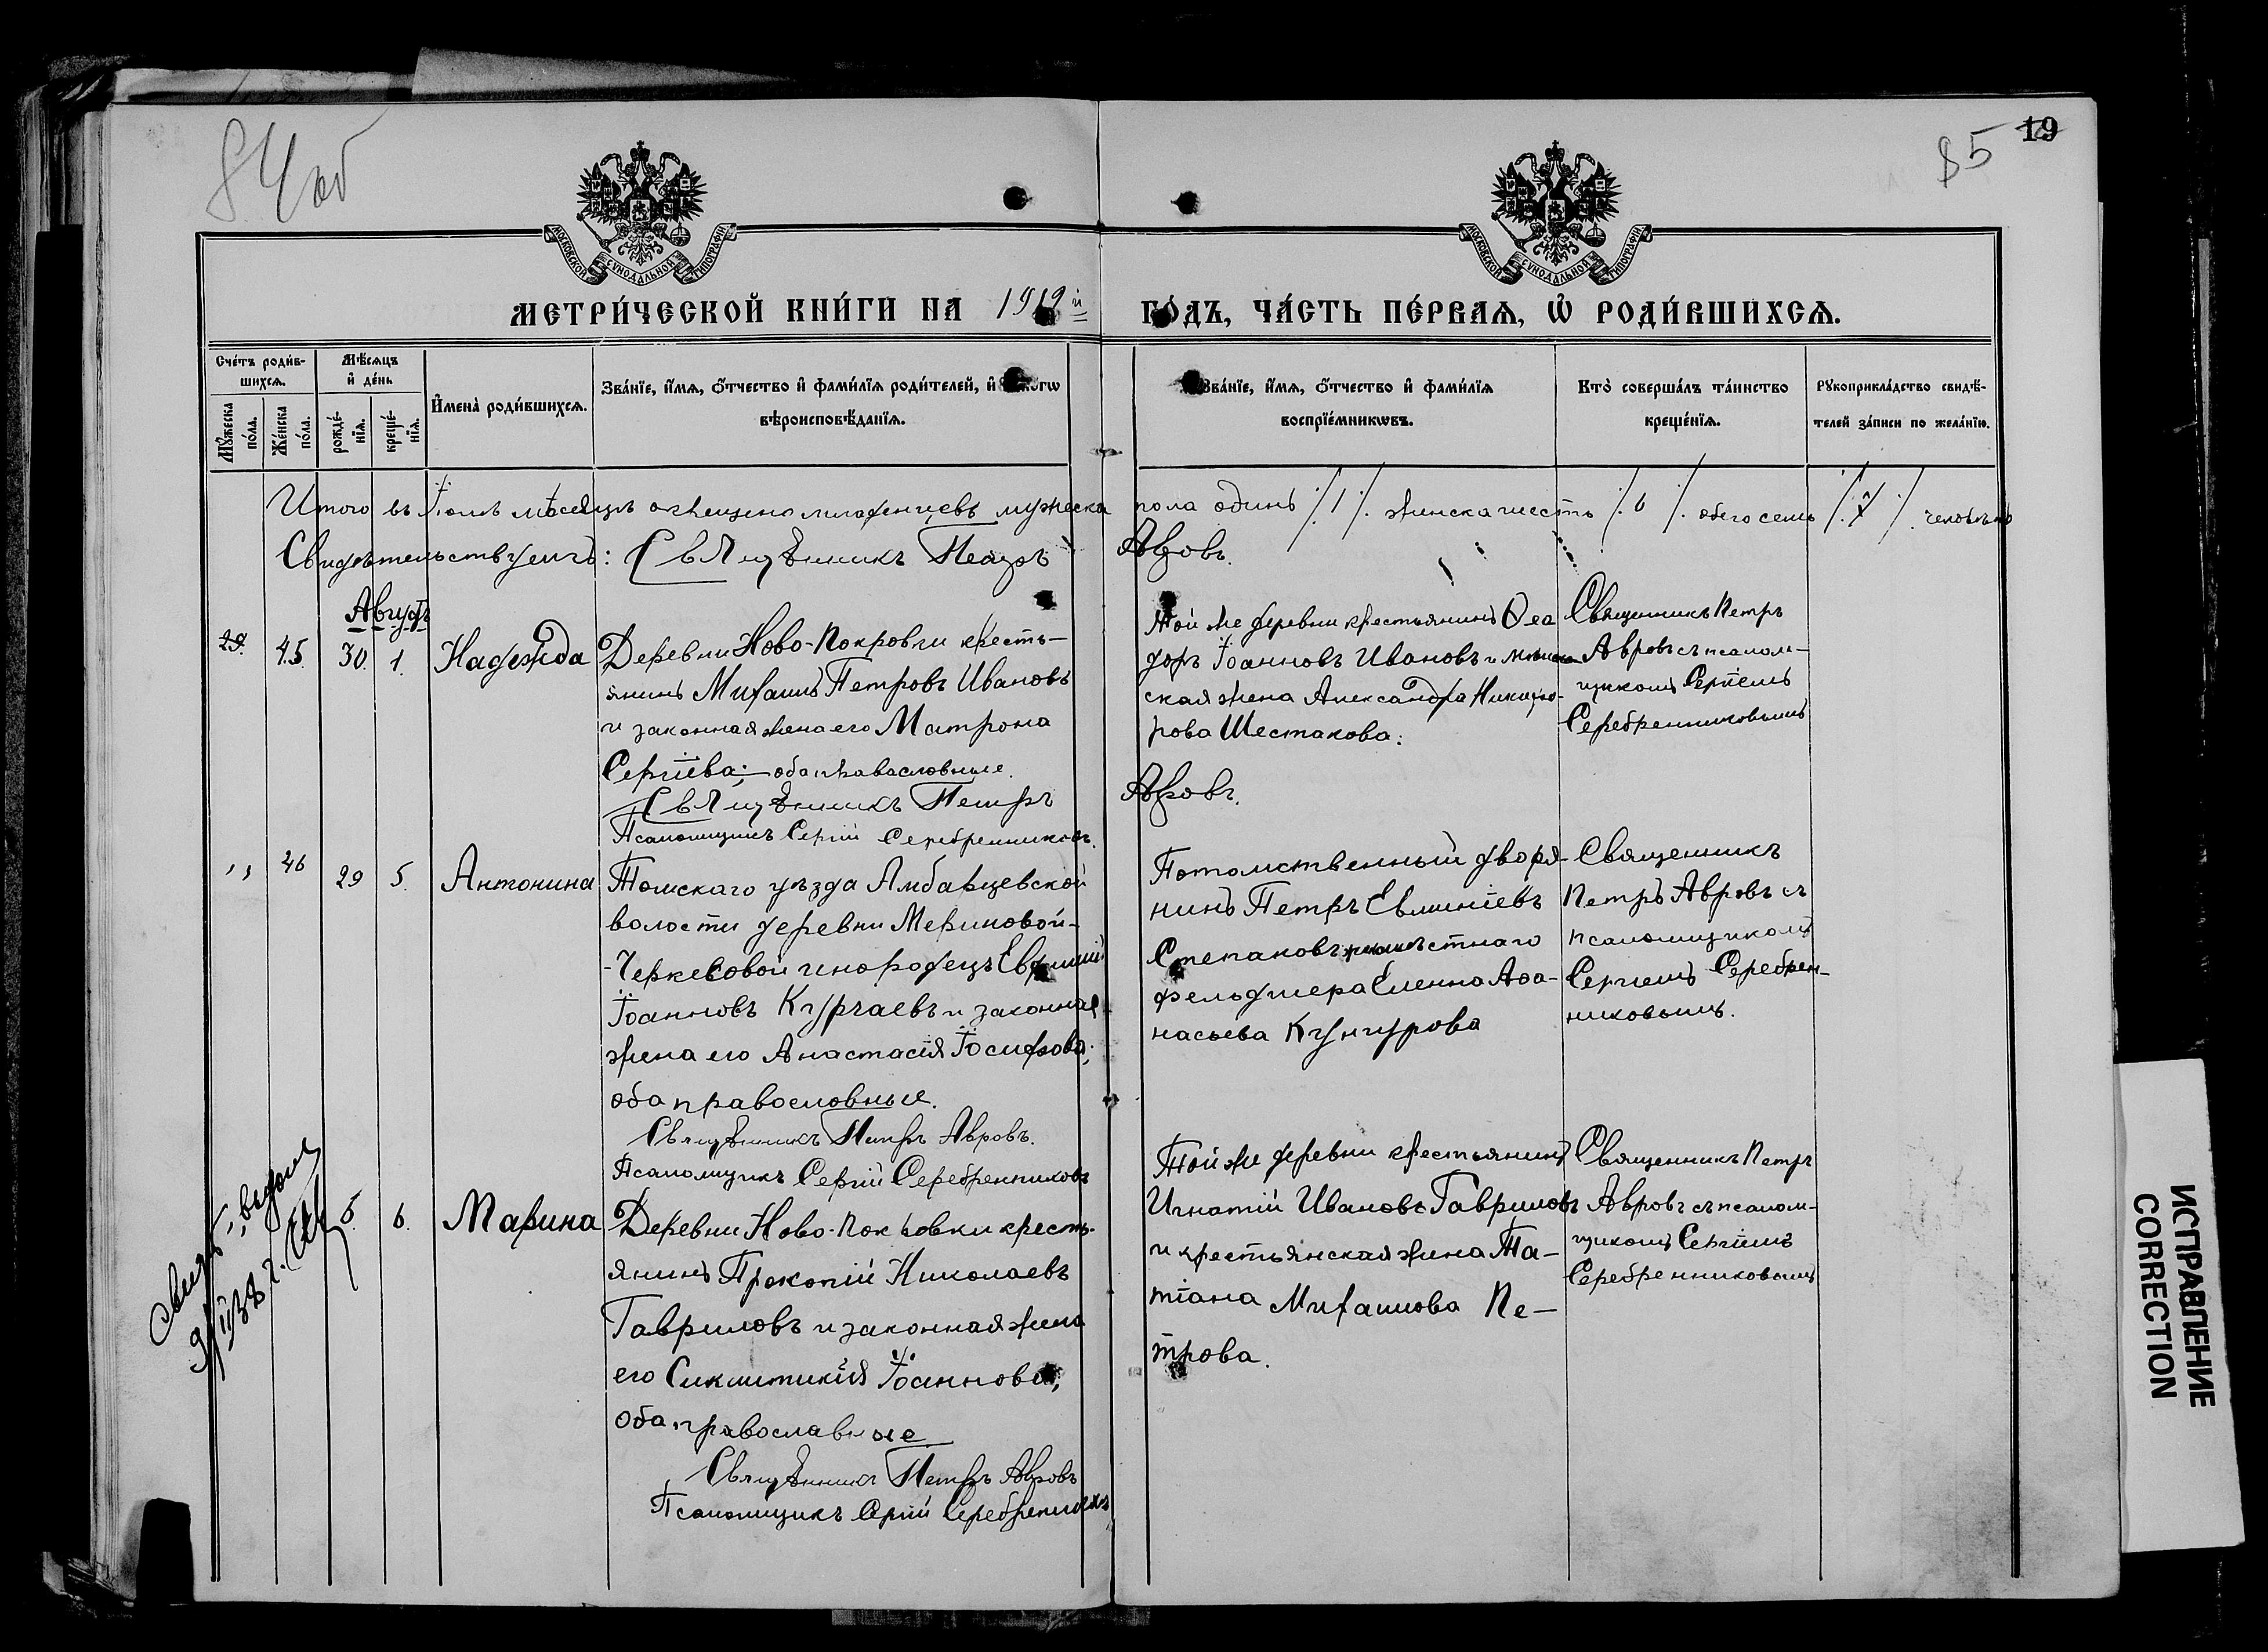 84 об
85
19
МОСКОВСКОЙ СУНОДАЛЬНОЙ ТИПОГРАФІИ
МОСКОВСКОЙ СУНОДАЛЬНОЙ ТИПОГРАФІИ
МЕТРИ́ЧЕСКОЙ КНИ́ГИ НА 1919 й ГО́ДЪ, ЧА́СТЬ ПЕ́РВАѦ, Ѡ҆ РОДИ́ВШИХСѦ.
Сче́тъ роди́в-
шихсѧ.
Мѣ́сѧцъ
и҆ де́нь
Мꙋ́жеска
по́ла.
Же́нска
по́ла.
рожде́-
нїѧ.
креще́-
нїѧ.
И҆мена̀ роди́вшихсѧ.
Зва́нїе, и҆́мѧ, ѻ҆́тчество и҆ фами́лїѧ роди́телей, и҆
вѣроисповѣ́данїѧ.
Зва́нїе, и҆́мѧ, ѻ҆́тчество и҆ фами́лїѧ
воспрїе́мникѡвъ.
Кто̀ соверша́лъ та́инство
креще́нїѧ.
Рꙋкоприкла́дство свидѣ́-
телей за́писи по жела́нїю.
Итого въ Іюлѣ мѣсяцѣ окрещено младенцевъ мужеска пола одинъ /1/ женска шесть /6/ обего семь /7/ человѣкъ
Свидѣтельствуемъ: Священникъ Петръ Авровъ.
Августъ
29. 45. 30. 1. Надежда
Деревни Ново-Покровки кресть-
янинъ Михаилъ Петровъ Ивановъ
и законная жена его Матрона
Сергіева; оба православные.
Священникъ Петръ Авровъ.
Псаломщикъ Сергій Серебренниковъ.
Той же деревни крестьянинъ Ѳео
доръ Іоанновъ Ивановъ и
ская жена Александра Никифо-
рова Шестакова.
Священникъ Петръ
Авровъ съ псалом-
щикомъ Сергіемъ
Серебренниковымъ
" 46 29 5. Антонина
Томскаго уѣзда Амбарцевской
волости деревни Мериновой-
-Черкесовой инородецъ Евфимій
Іоанновъ Курчаевъ и законная
жена его Анастасія Іосифова;
оба православные.
Священникъ Петръ Авровъ.
Псаломщикъ Сергій Серебренниковъ
Потомственный дворя-
нинъ Петръ Евминіевъ
Степановъ
фельдшера Еленна Аѳа-
насьева Кунгурова
Священникъ
Петръ Авровъ съ
псаломщикомъ
Сергіемъ Серебрен-
никовымъ.
5. 6. Марина
Деревни Ново-Покровки кресть-
янинъ Прокопій Николаевъ
Гавриловъ и законная жена
его Синклитикія Іоаннова;
оба православные
Священникъ Петръ Авровъ
Псаломщикъ Сергій Серебренниковъ
Той же деревни крестьянинъ
Игнатій Ивановъ Гавриловъ
и крестьянская жена Та-
тіана Михаилова Пе-
трова.
Священникъ Петръ
Авровъ съ псалом-
щикомъ Сергіемъ
Серебренниковымъ
ИСПРАВЛЕНИЕ
CORRECTION